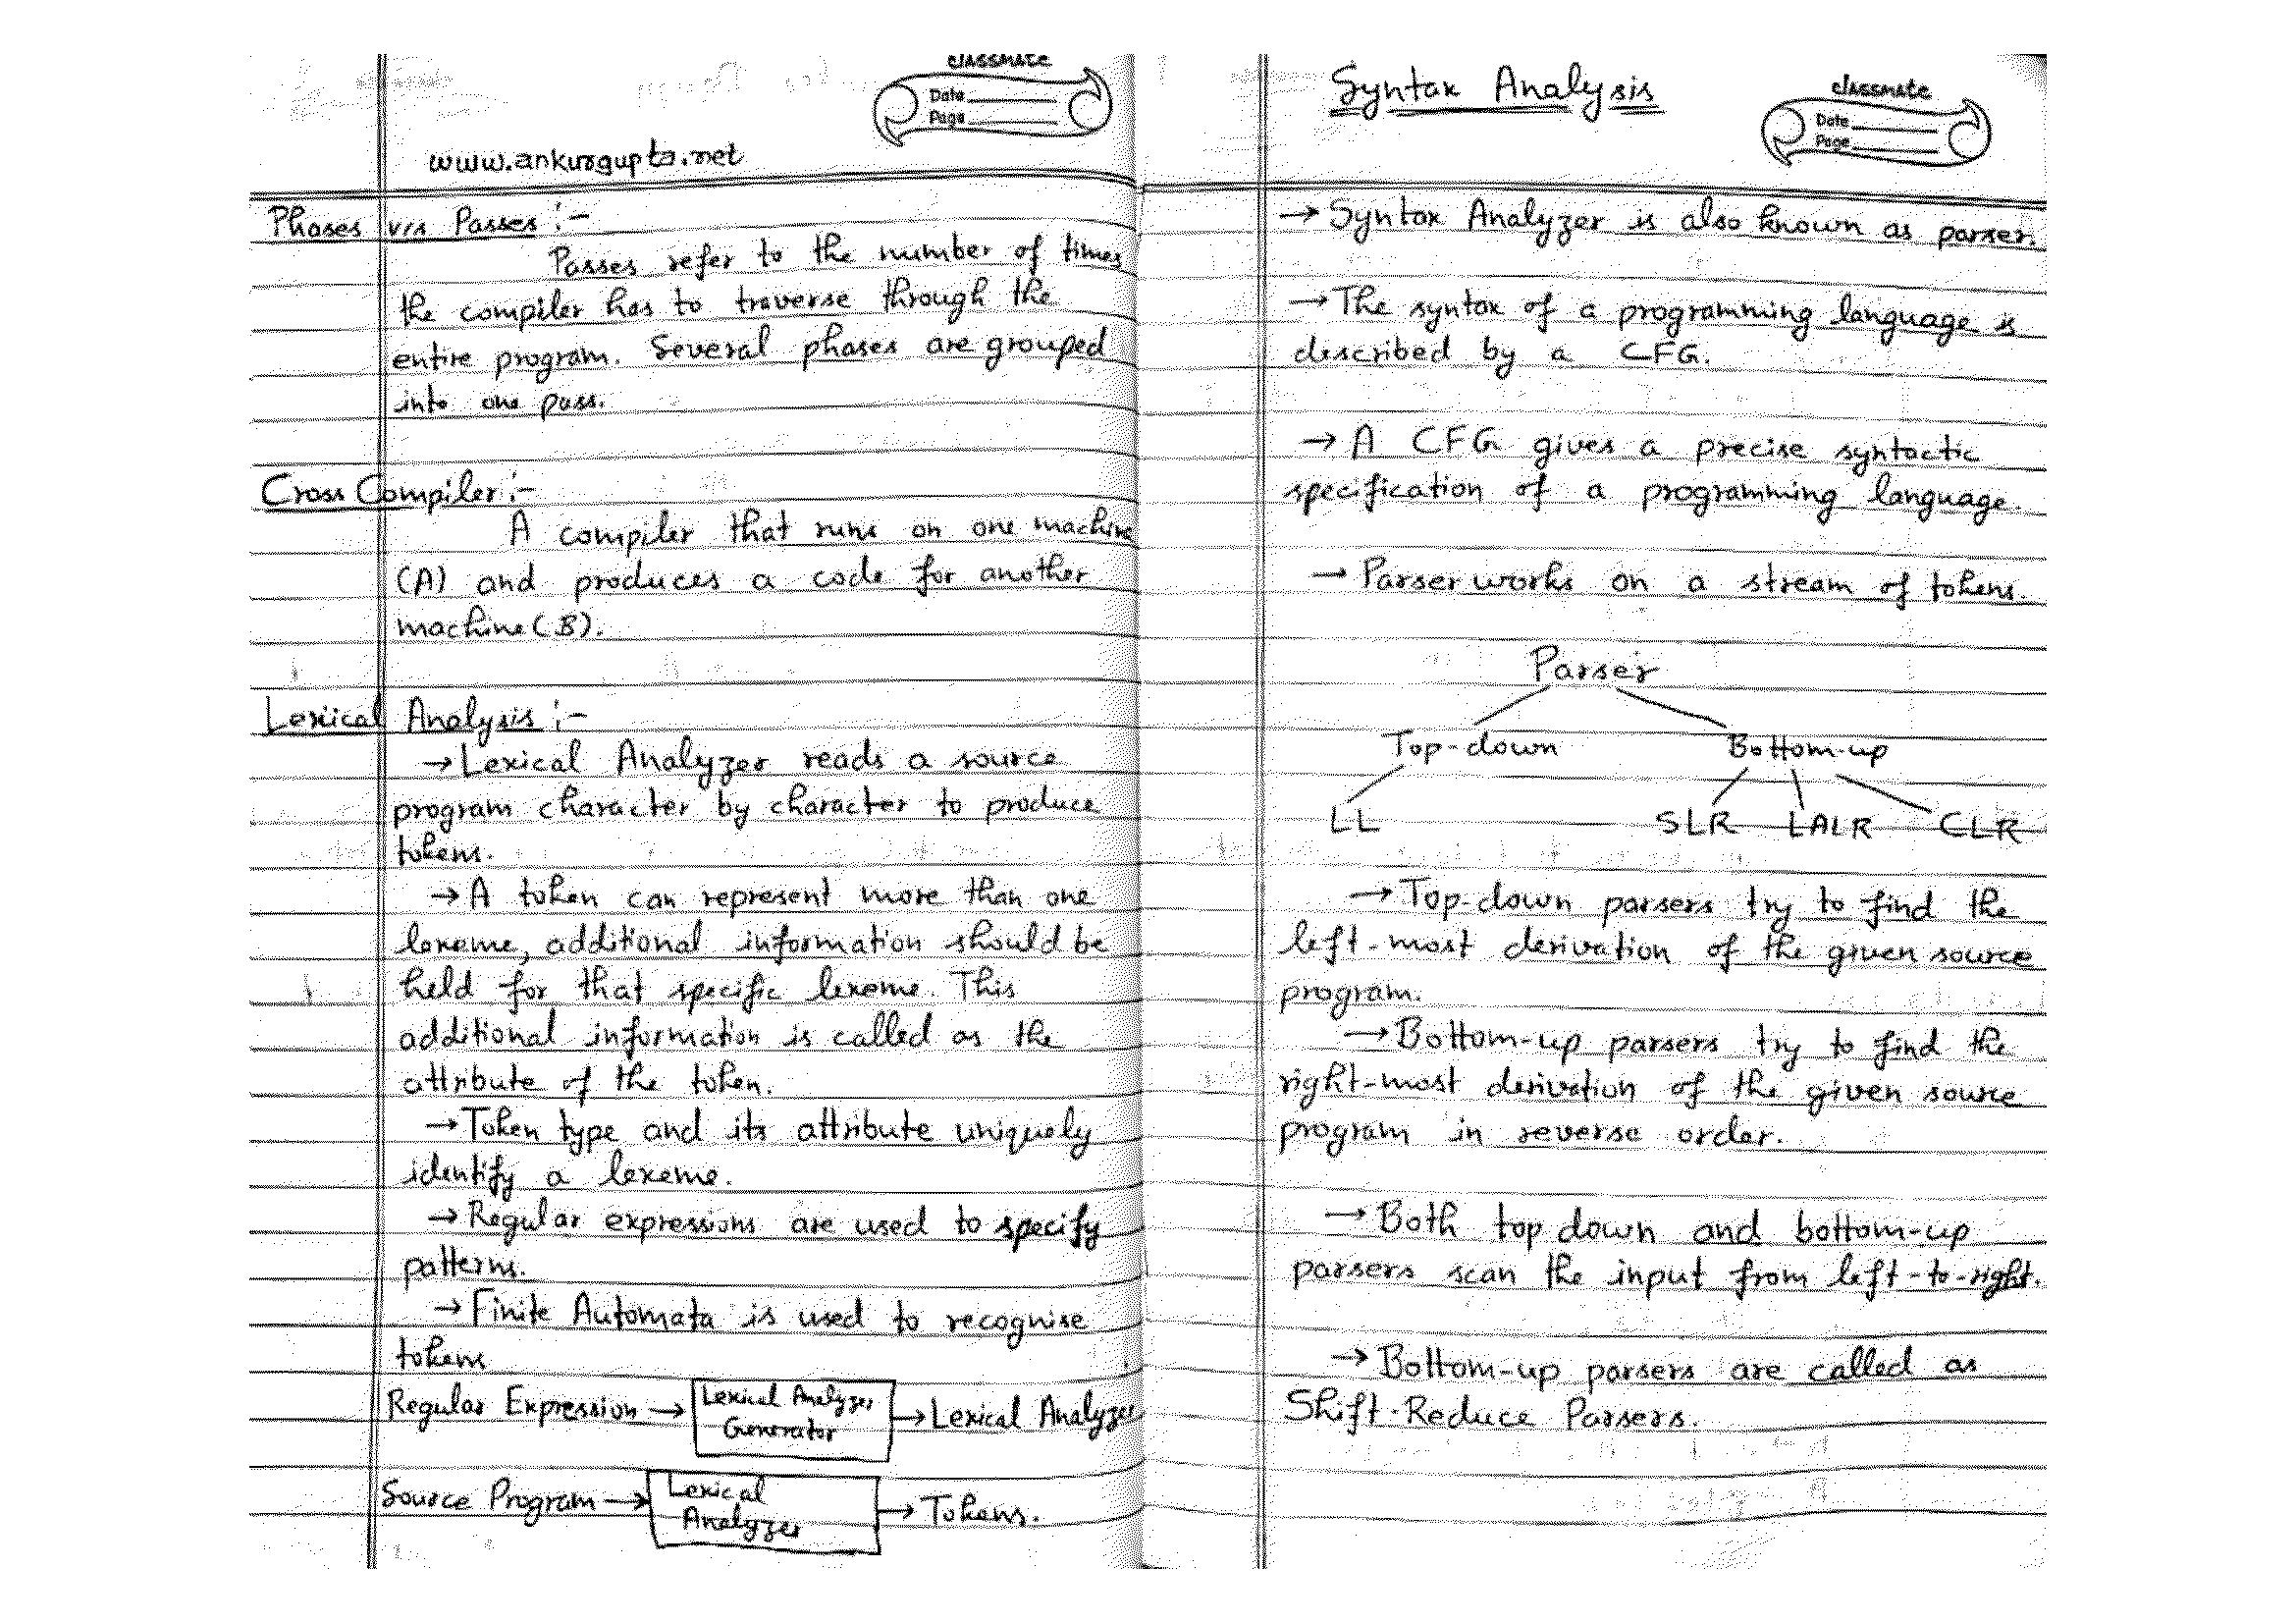 classmate
Date
Page
www.ankurgupta.net
Phases v/s Passes :-
Passes refer to the number of times
the compiler has to traverse through the
entire program. Several phases are grouped
into one pass.
Cross Compiler :-
A compiler that runs on one machine
(A) and produces a code for another
machine (B).
Lexical Analysis :-
→ Lexical Analyzer reads a source
program character by character to produce
tokens.
→ A token can represent more than one
lexeme, additional information should be
held for that specific lexeme. This
additional information is called as the
attribute of the token.
→ Token type and its attribute uniquely
identify a lexeme.
→ Regular expressions are used to specify
patterns.
→ Finite Automata is used to recognise
tokens
Regular Expression → Lexical Analyzer Generator → Lexical Analyzer
Source Program → Lexical Analyzer → Tokens.
Syntax Analysis
classmate
Date
Page
→ Syntax Analyzer is also known as parser.
→ The syntax of a programming language is
described by a CFG.
→ A CFG gives a precise syntactic
specification of a programming language.
→ Parser works on a stream of tokens.
Parser
Top-down Bottom-up
LL SLR LALR CLR
→ Top-down parsers try to find the
left-most derivation of the given source
program.
→ Bottom-up parsers try to find the
right-most derivation of the given source
program in reverse order.
→ Both top down and bottom-up
parsers scan the input from left-to-right.
→ Bottom-up parsers are called as
Shift-Reduce Parsers.